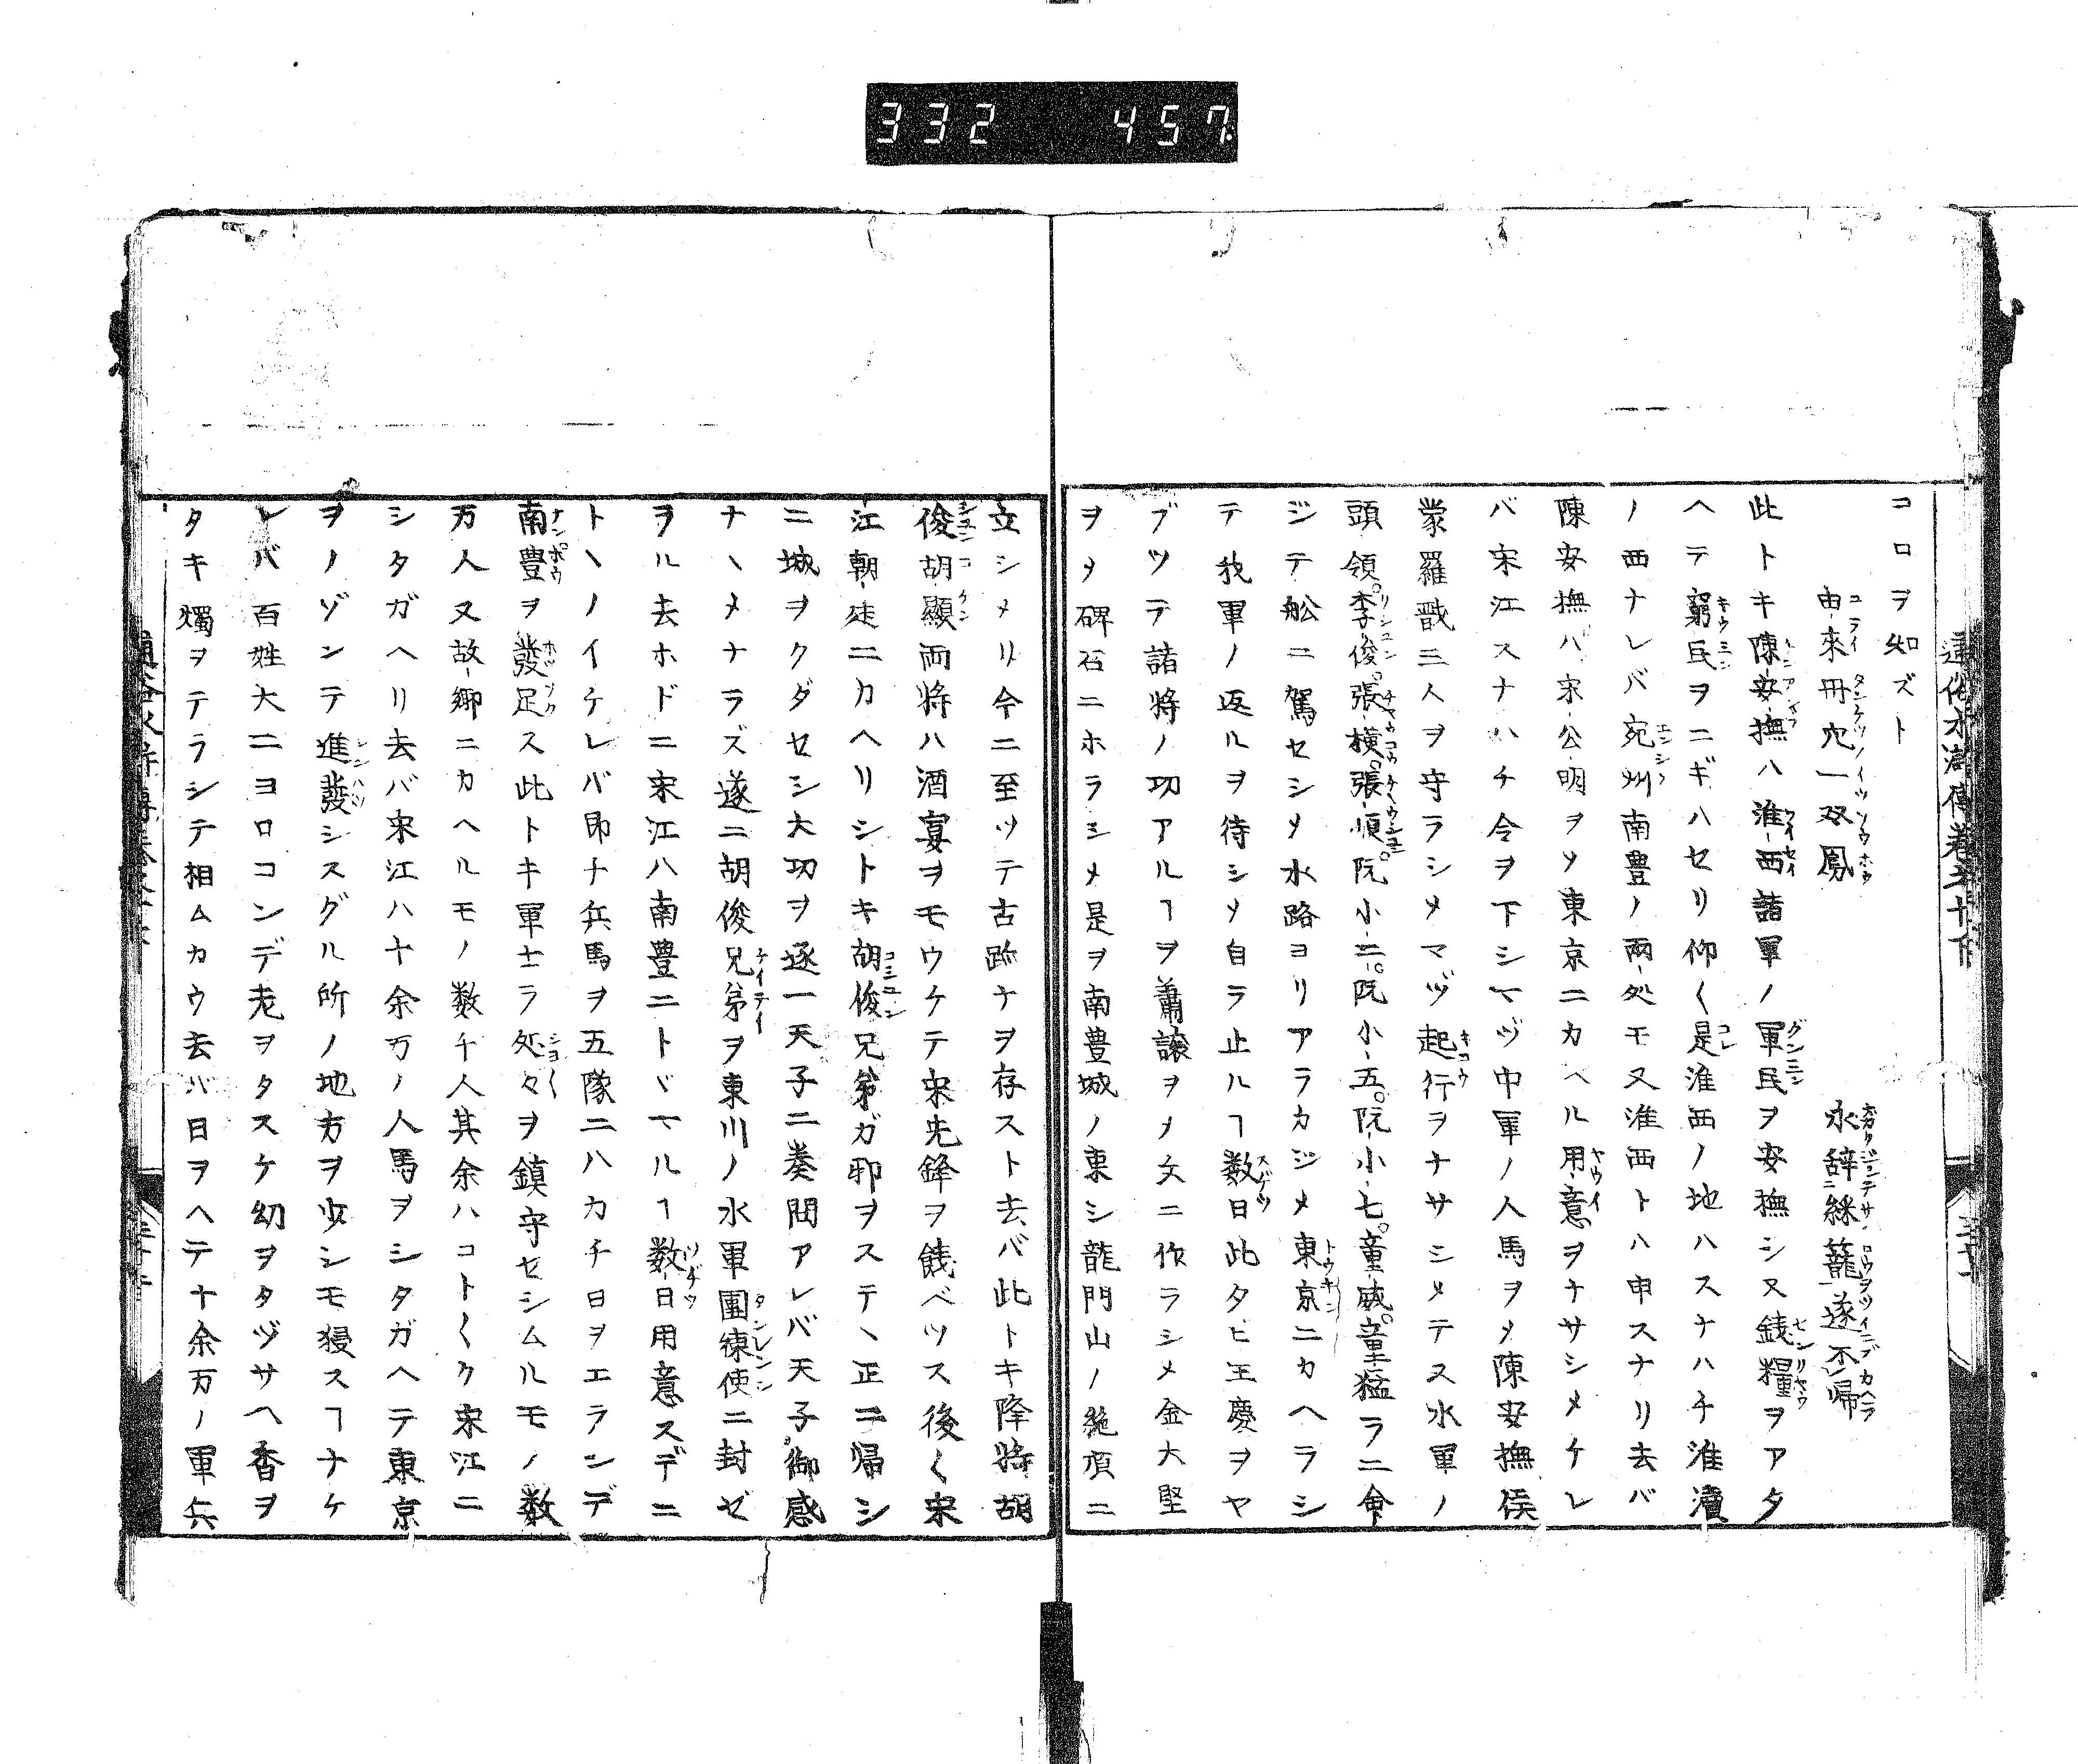 332 457
コロヲ知ズト
由来丹穴一双鳳 永辞綵籠遂不帰
此トキ陳安撫ハ淮西諸軍ノ軍民ヲ安撫シ又銭糧ヲアタ
ヘテ窮民ヲニギハセリ仰〱是淮西ノ地ハスナハチ淮瀆
ノ西ナレバ宛州南豊ノ兩処モ又淮西トハ申スナリ去バ
陳安撫ハ宋公明ヲメ東京ニカヘル用意ヲナサシメケレ
バ宋江スナハチ令ヲ下シマヅ中軍ノ人馬ヲメ陳安撫侯
蒙羅戩三人ヲ守ラシメマヅ起行ヲナサシメテヌ水軍ノ
頭領李俊張横張順阮小二阮小五阮小七童威童猛ラニ命
ジテ舩ニ駕セシメ水路ヨリアラカジメ東京ニカヘラシ
テ我軍ノ返ルヲ待シメ自ラ止ルヿ数日此タビ王慶ヲヤ
ブツテ諸將ノ功アルヿヲ蕭譲ヲメ文ニ作ラシメ金大堅
ヲメ碑石ニホラシメ是ヲ南豊城ノ東シ龍門山ノ絶頂ニ
立シメリ今ニ至ツテ古跡ナヲ存スト去バ此トキ降將胡
俊胡顯両将ハ酒宴ヲモウケテ宋先鋒ヲ餞ベツス後〱宋
江朝廷ニカヘリシトキ胡俊兄弟ガ邪ヲステヽ正ニ帰シ
二城ヲクダセシ大功ヲ逐一天子ニ奏聞アレバ天子御感
ナヽメナラズ遂ニ胡俊兄弟ヲ東川ノ水軍團練使ニ封ゼ
ヲル去ホドニ宋江ハ南豊ニトヾマルヿ数日用意スデニ
トヽノイケレバ即チ兵馬ヲ五隊ニハカチ日ヲエランデ
南豊ヲ發足ス此トキ軍士ラ処々ヲ鎮守セシムルモノ数
万人又故郷ニカヘルモノ数千人其余ハコト〱ク宋江ニ
シタガヘリ去バ宋江ハ十余万ノ人馬ヲシタガヘテ東京
ヲノゾンテ進發シスグル所ノ地方ヲ少シモ擾スヿナケ
レバ百姓大ニヨロコンデ老ヲタスケ幼ヲタヅサヘ香ヲ
タキ燭ヲテラシテ相ムカウ去バ日ヲヘテ十余万ノ軍兵